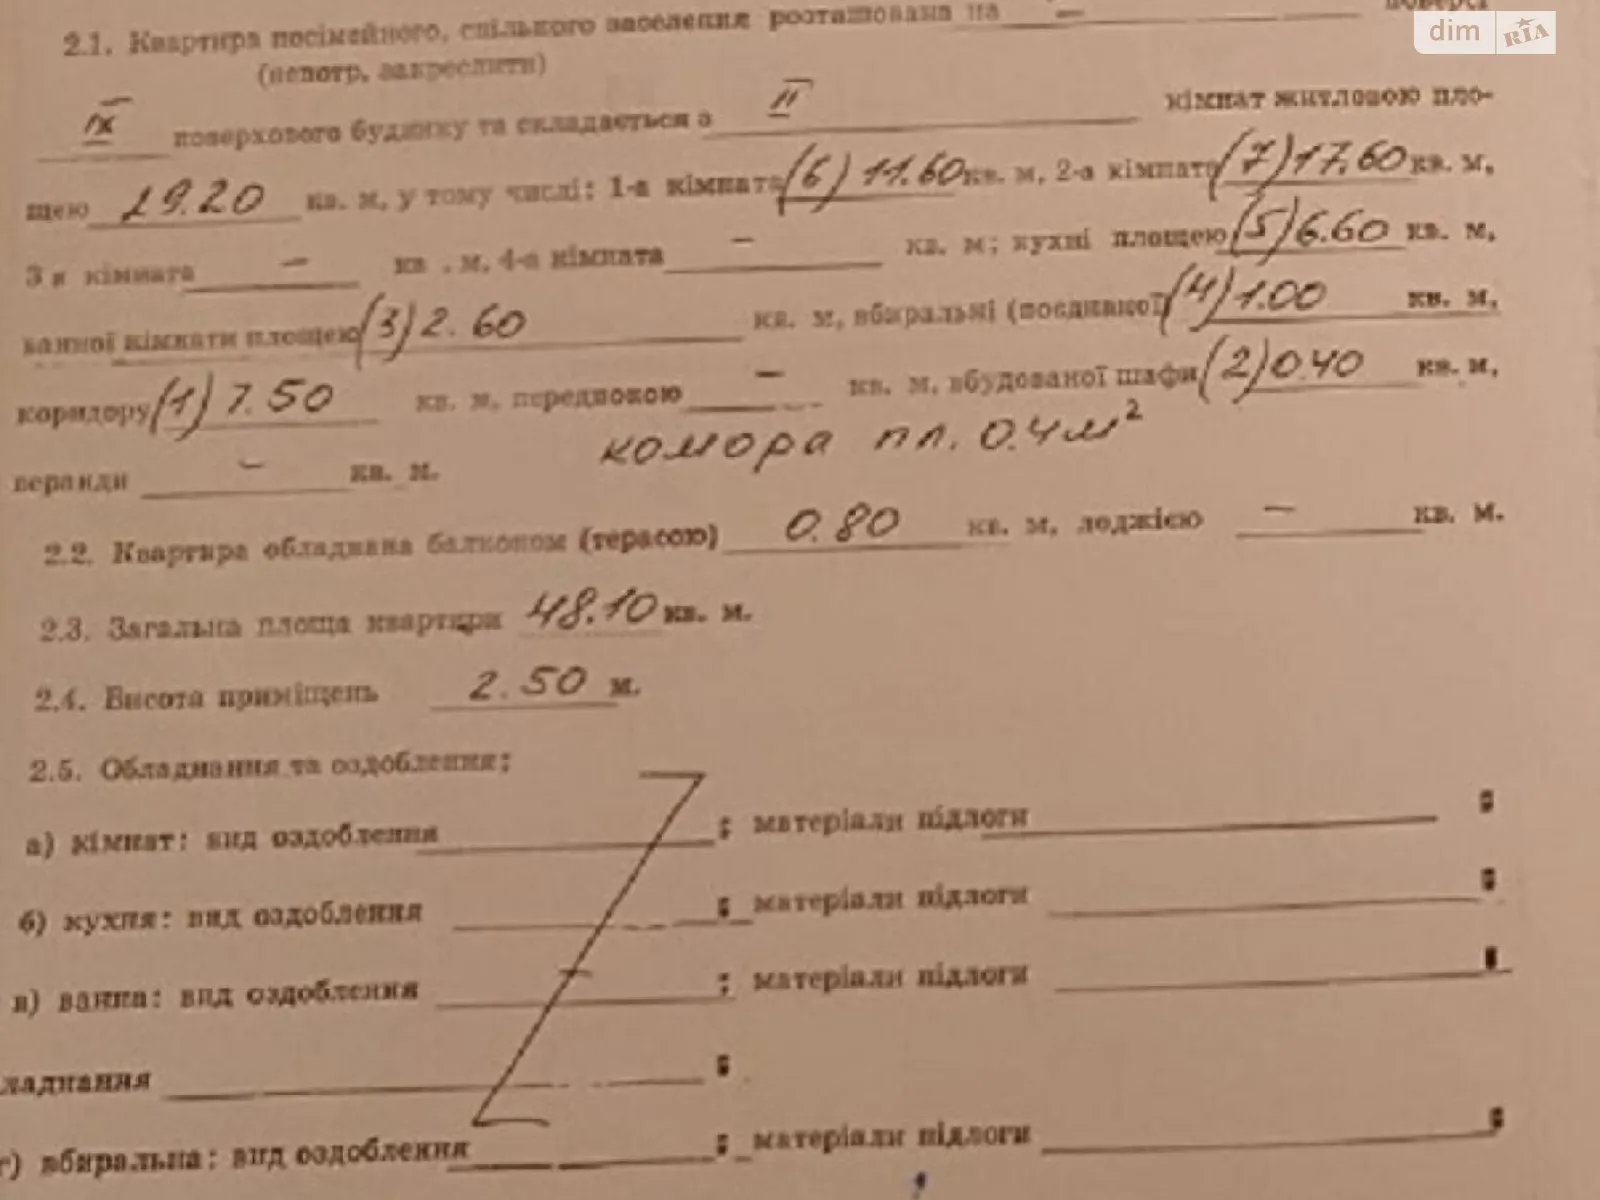 2.1. Квартира посімейного, спільного заселення розташована на — поверсі
dim RIA
(непотр. закреслити)
IX поверхового будинку та складається з II кімнат житловою пло-
щею 29.20 кв. м, у тому числі: 1-а кімната (6) 11.60 кв. м, 2-а кімната (7) 17.60 кв. м,
3 я кімната — кв . м, 4-а кімната — кв. м; кухні площею (5) 6.60 кв. м,
ванної кімнати площею (3) 2.60 кв. м, вбиральні (поєднаної) (4) 1.00 кв. м,
коридору (1) 7.50 кв. м, передпокою — кв. м, вбудованої шафи (2) 0.40 кв. м,
комора пл. 0.4м²
веранди — кв. м.
2.2. Квартира обладнана балконом (терасою) 0.80 кв. м, лоджією — кв. м.
2.3. Загальна площа квартири 48.10 кв. м.
2.4. Висота приміщень 2.50 м.
2.5. Обладнання та оздоблення:
а) кімнат: вид оздоблення ; матеріали підлоги ;
б) кухня: вид оздоблення ; матеріали підлоги ;
в) ванна: вид оздоблення ; матеріали підлоги ;
ладнання ;
г) вбиральна: вид оздоблення ; матеріали підлоги ;